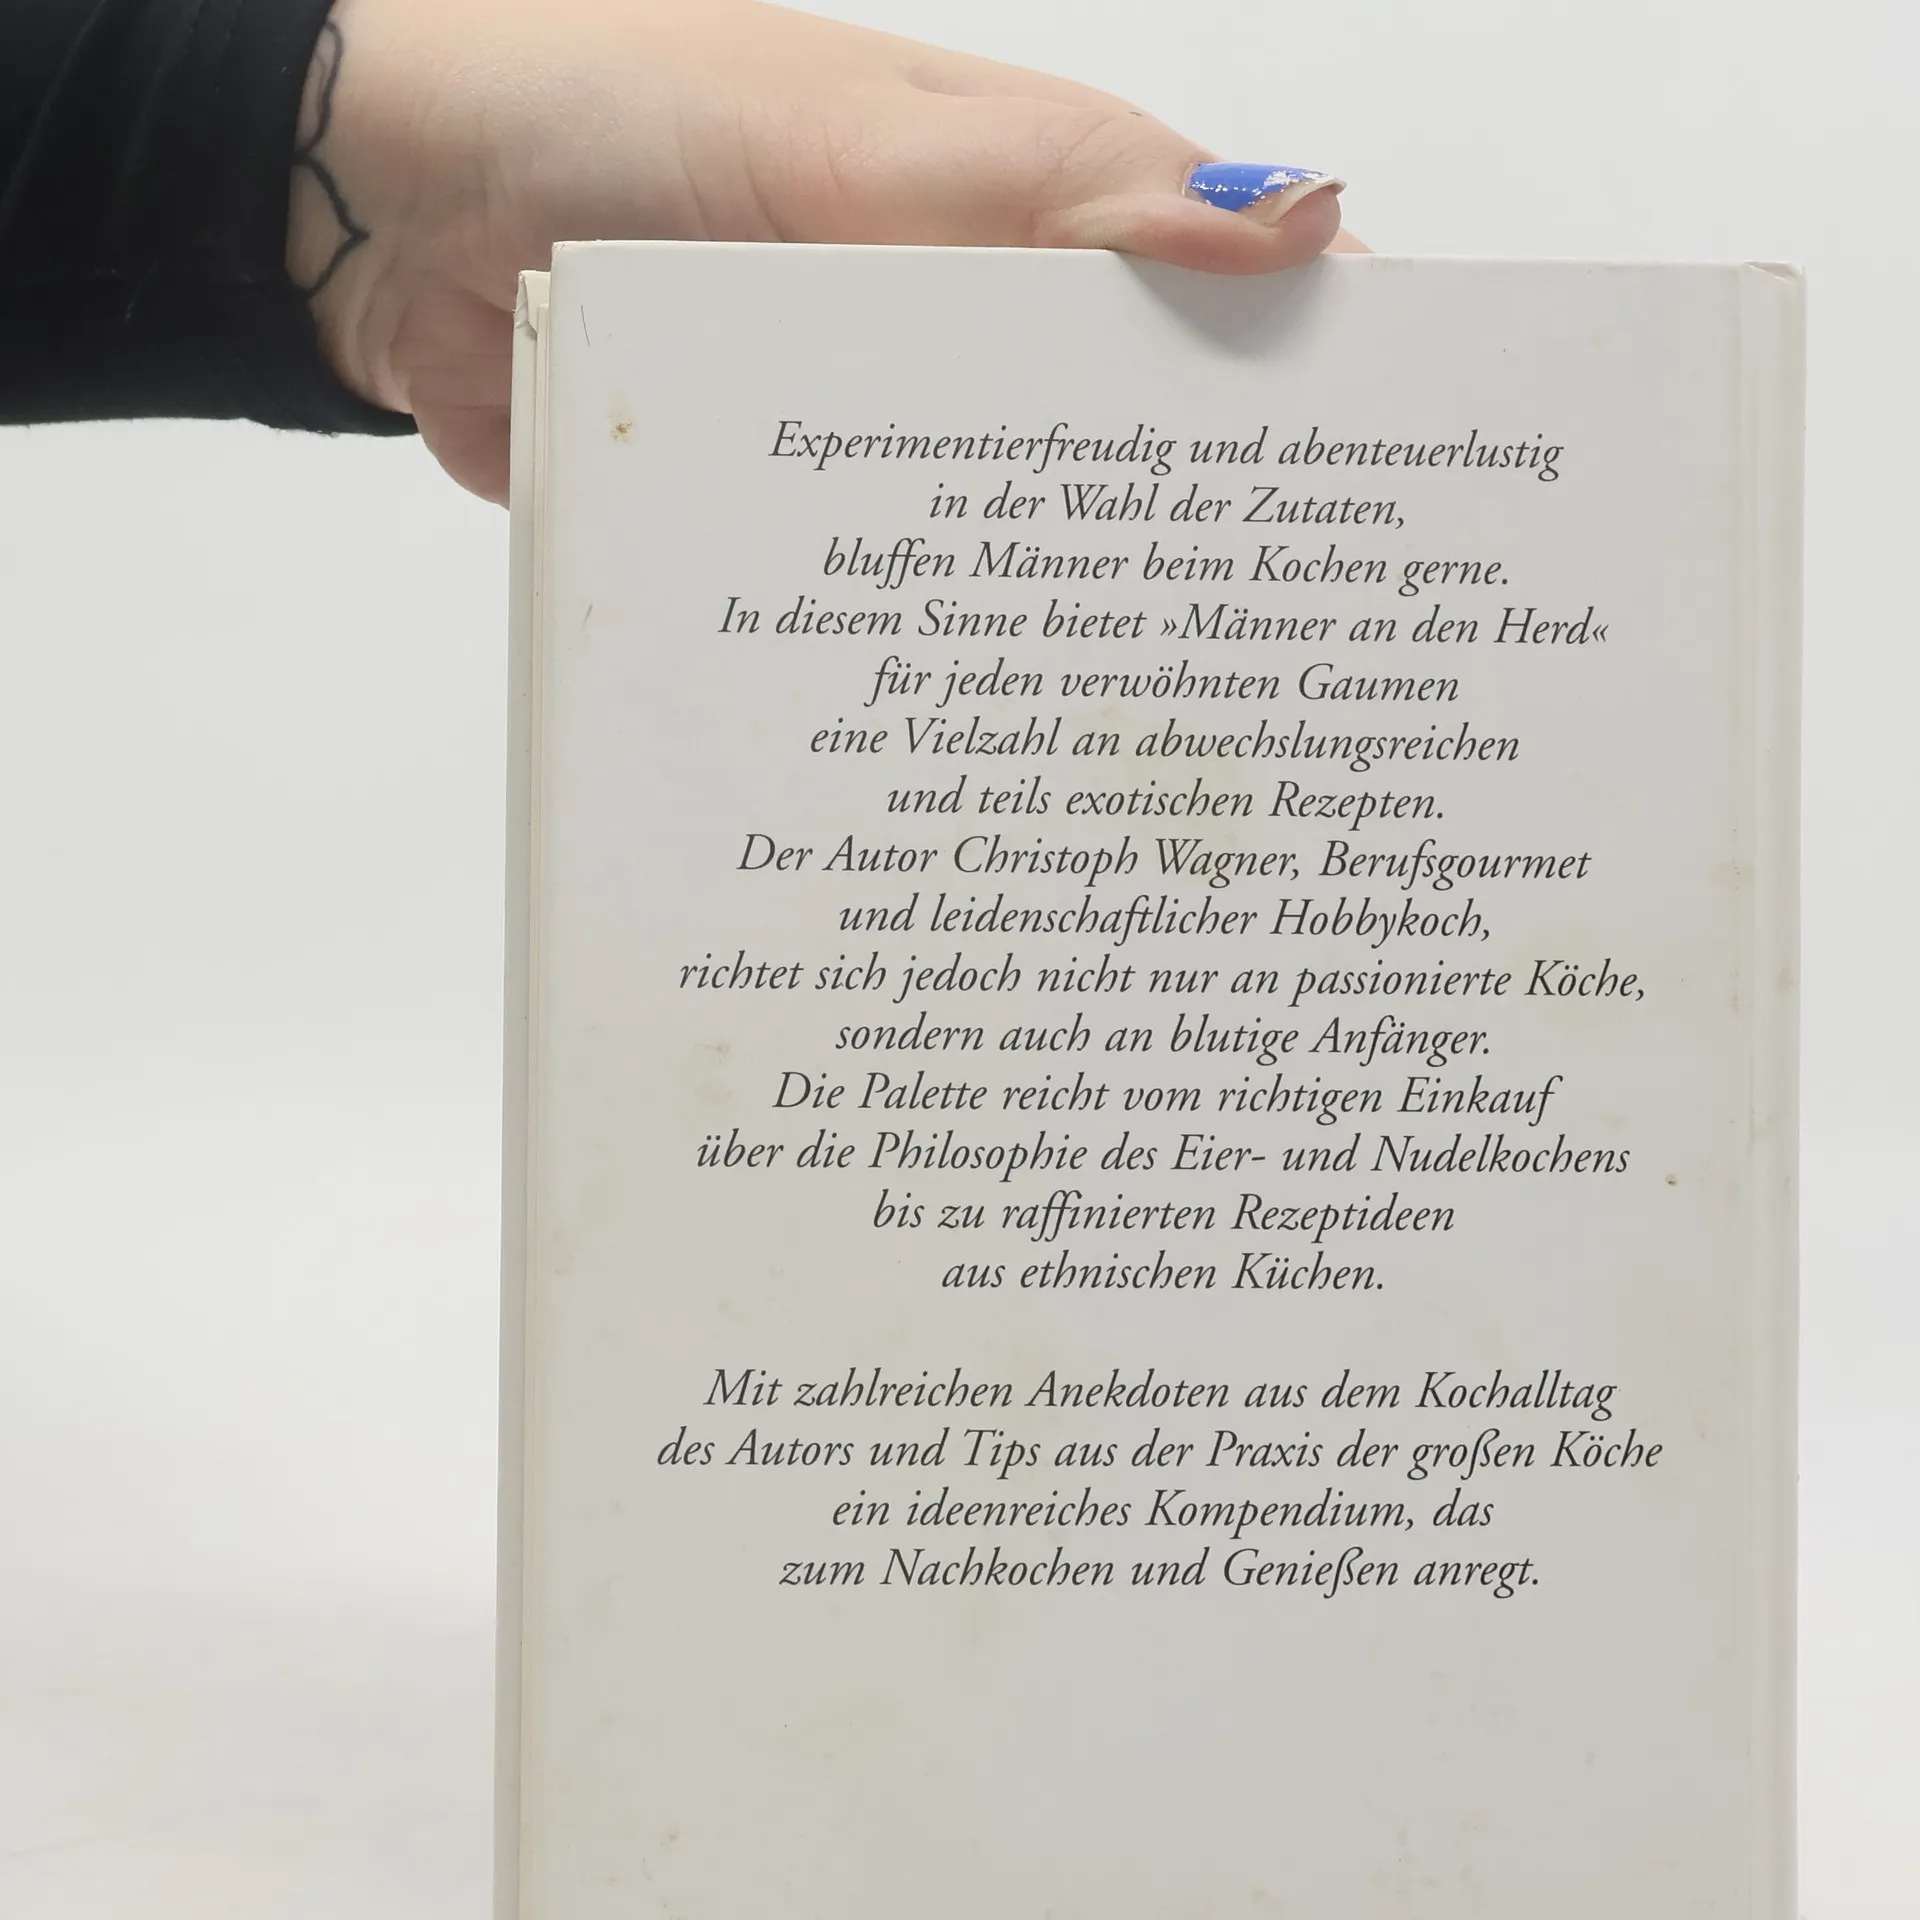 Experimentierfreudig und abenteuerlustig
in der Wahl der Zutaten,
bluffen Männer beim Kochen gerne.
In diesem Sinne bietet »Männer an den Herd«
für jeden verwöhnten Gaumen
eine Vielzahl an abwechslungsreichen
und teils exotischen Rezepten.
Der Autor Christoph Wagner, Berufsgourmet
und leidenschaftlicher Hobbykoch,
richtet sich jedoch nicht nur an passionierte Köche,
sondern auch an blutige Anfänger.
Die Palette reicht vom richtigen Einkauf
über die Philosophie des Eier- und Nudelkochens
bis zu raffinierten Rezeptideen
aus ethnischen Küchen.
Mit zahlreichen Anekdoten aus dem Kochalltag
des Autors und Tips aus der Praxis der großen Köche
ein ideenreiches Kompendium, das
zum Nachkochen und Genießen anregt.